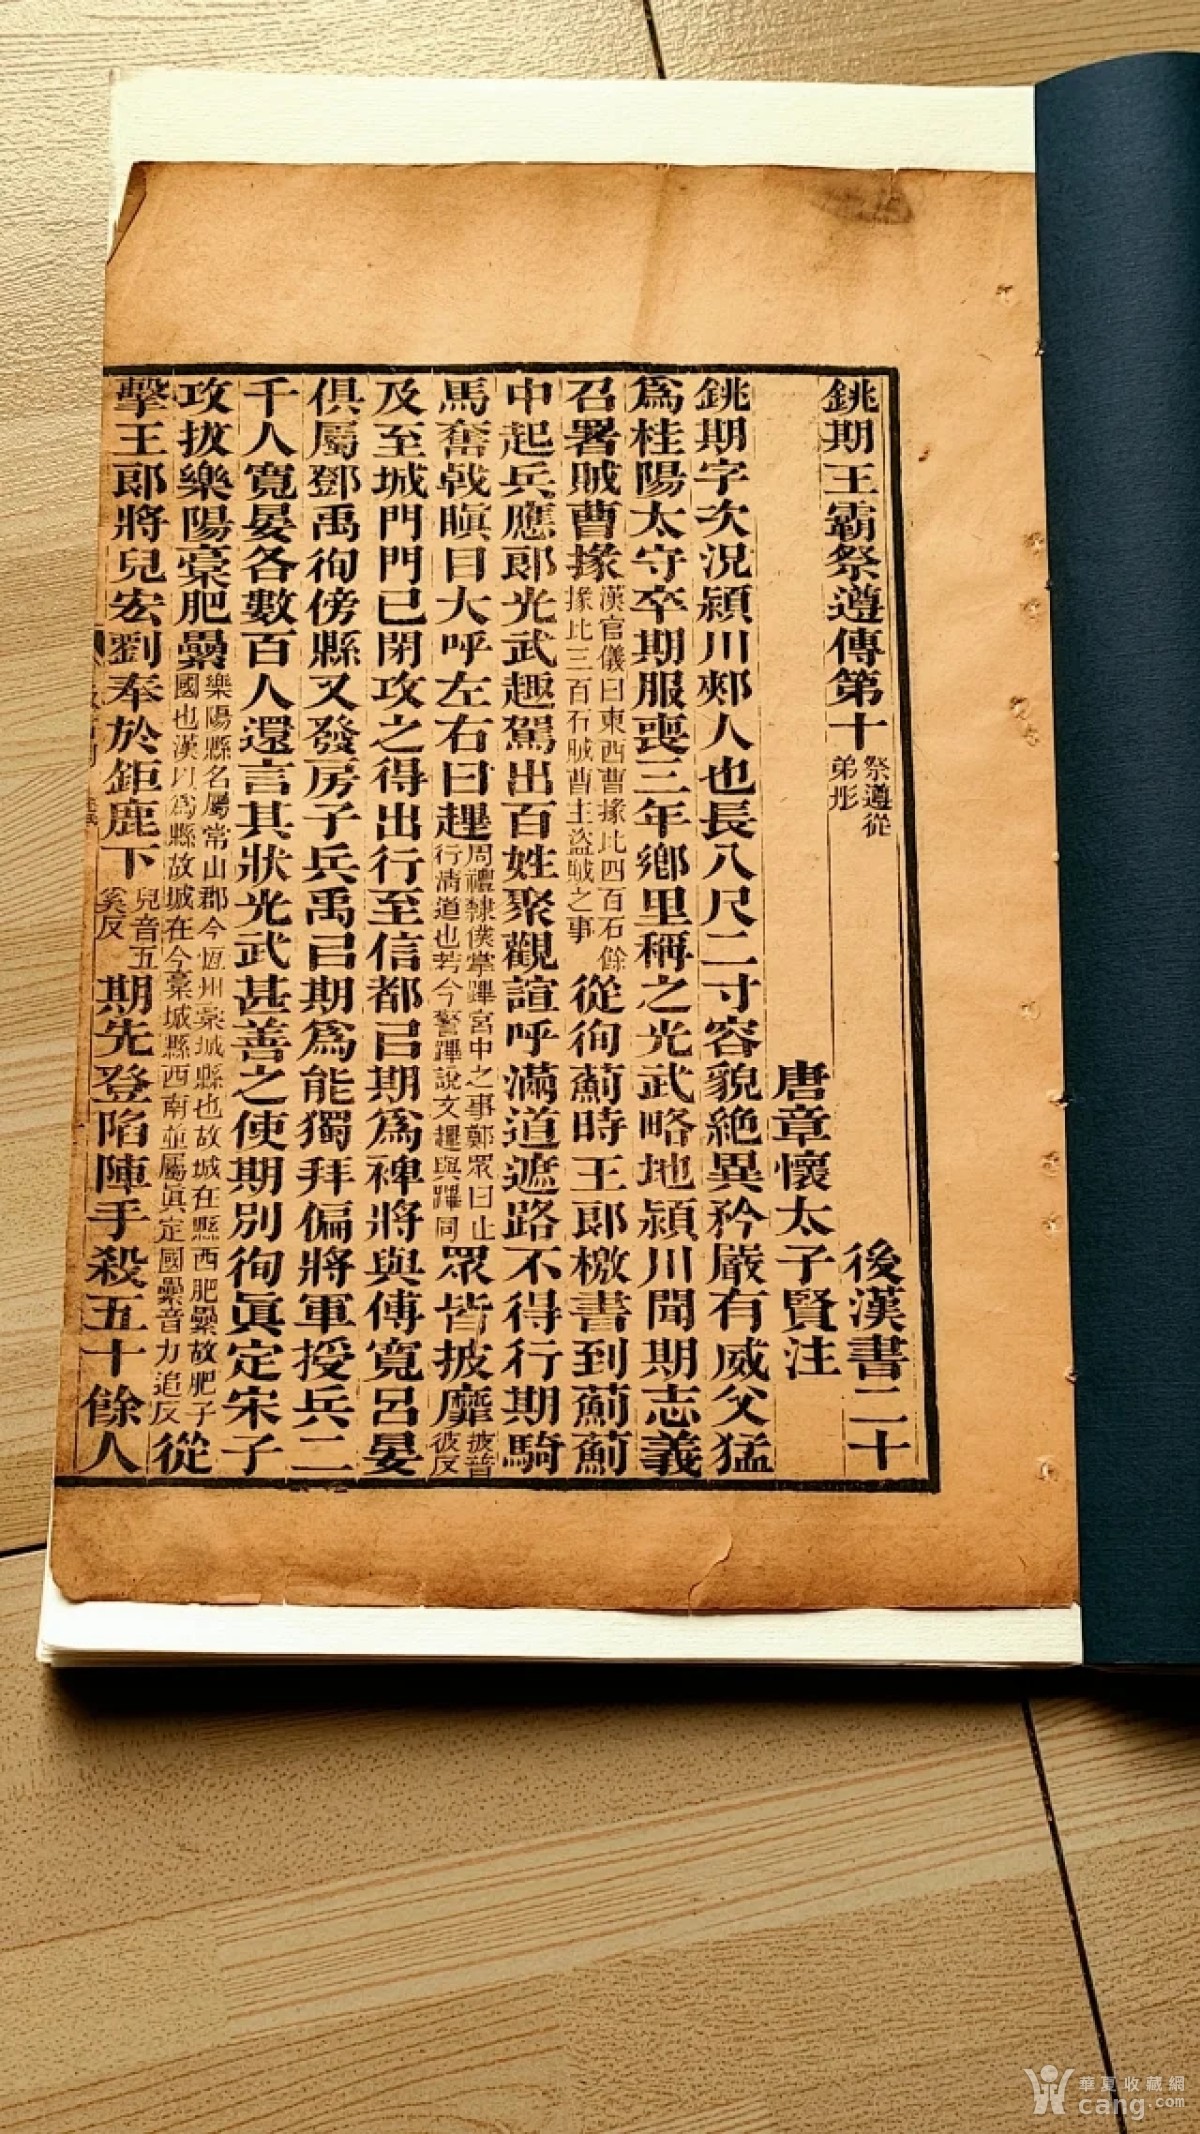 銚期王霸祭遵傳第十祭遵從弟肜 後漢書二十
唐章懷太子賢注
銚期字次況潁川郟人也長八尺二寸容貌絕異矜嚴有威父猛
爲桂陽太守卒期服喪三年鄉里稱之光武略地潁川聞期志義
召署賊曹掾漢官儀曰東西曹掾比四百石餘掾比三百石賊曹主盜賊之事從徇薊時王郎檄書到薊薊
中起兵應郎光武趨駕出百姓聚觀諠呼滿道遮路不得行期騎
馬奮戟瞋目大呼左右曰趩周禮隸僕掌蹕宮中之事鄭眾曰止行清道也若今警蹕說文趩與蹕同眾皆披靡披音彼反
及至城門門已閉攻之得出行至信都㠯期爲裨將與傅寬呂晏
俱屬鄧禹徇傍縣又發房子兵禹㠯期爲能獨拜偏將軍授兵二
千人寬晏各數百人還言其狀光武甚善之使期別徇眞定宋子
攻拔樂陽稾肥纍樂陽縣名屬常山郡今恆州稾城縣也故城在縣西肥纍故肥子國也漢以爲縣故城在今稾城縣西南並屬眞定國纍音力追反從
擊王郎將兒宏劉奉於鉅鹿下兒音五奚反期先登陷陣手殺五十餘人
華夏收藏網
cang.com